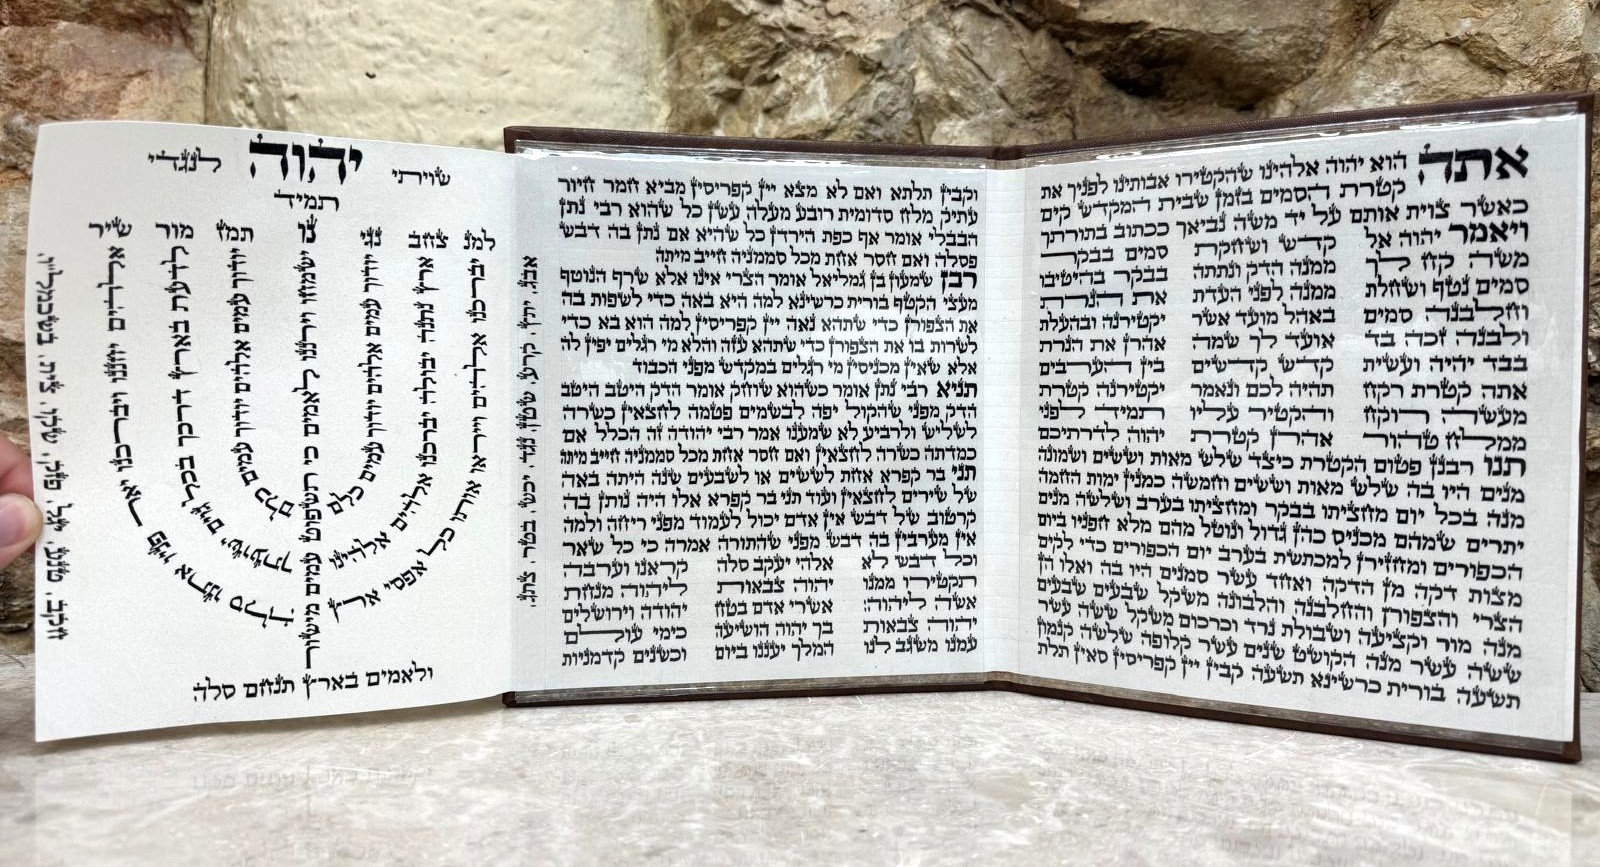 אתה הוא יהוה אלהינו שהקטירו אבותינו לפניך את
קטרת הסמים בזמן שבית המקדש קים
כאשר צוית אותם על יד משה נביאך ככתוב בתורתך
ויאמר יהוה אל קדש ושחקת סמים בבקר
משה קח לך ממנה הדק ונתתה בבקר בהיטיבו
סמים נטף ושחלת ממנה לפני העדת את הנרת
וחלבנה סמים באהל מועד אשר יקטירנה ובהעלת
ולבנה זכה בד אועד לך שמה אהרן את הנרת
בבד יהיה ועשית קדש קדשים בין הערבים
אתה קטרת רקח תהיה לכם ונאמר יקטירנה קטרת
מעשה רוקח והקטיר עליו תמיד לפני
ממלח טהור אהרן קטרת יהוה לדרתיכם
תנו רבנן פטום הקטרת כיצד שלש מאות וששים ושמונה
מנים היו בה שלש מאות וששים וחמשה כמנין ימות החמה
מנה בכל יום מחציתו בבקר ומחציתו בערב ושלשה מנים
יתרים שמהם מכניס כהן גדול ונוטל מהם מלא חפניו ביום
הכפורים ומחזירן למכתשת בערב יום הכפורים כדי לקים
מצות דקה מן הדקה ואחד עשר סמנים היו בה ואלו הן
הצרי והצפורן והחלבנה והלבונה משקל שבעים שבעים
מנה מור וקציעה ושבולת נרד וכרכום משקל ששה עשר
ששה עשר מנה הקושט שנים עשר קלופה שלשה קנמון
תשעה בורית כרשינא תשעה קבין יין קפריסין סאין תלת
וקבין תלתא ואם לא מצא יין קפריסין מביא חמר חיור
עתיק מלח סדומית רובע מעלה עשן כל שהוא רבי נתן
הבבלי אומר אף כפת הירדן כל שהיא אם נתן בה דבש
פסלה ואם חסר אחת מכל סממניה חייב מיתה
רבן שמעון בן גמליאל אומר הצרי אינו אלא שרף הנוטף
מעצי הקטף בורית כרשינא למה היא באה כדי לשפות בה
את הצפורן כדי שתהא נאה יין קפריסין למה הוא בא כדי
לשרות בו את הצפורן כדי שתהא עזה והלא מי רגלים יפין לה
אלא שאין מכניסין מי רגלים במקדש מפני הכבוד
תניא רבי נתן אומר כשהוא שוחק אומר הדק היטב היטב
הדק מפני שהקול יפה לבשמים פטמה לחצאין כשרה
לשליש ולרביע לא שמענו אמר רבי יהודה זה הכלל אם
כמדתה כשרה לחצאין ואם חסר אחת מכל סממניה חייב מיתה
תני בר קפרא אחת לששים או לשבעים שנה היתה באה
של שירים לחצאין ועוד תני בר קפרא אלו היה נותן בה
קרטוב של דבש אין אדם יכול לעמוד מפני ריחה ולמה
אין מערבין בה דבש מפני שהתורה אמרה כי כל שאר
וכל דבש לא אלהי יעקב סלה קראנו וערבה
תקטירו ממנו יהוה צבאות ליהוה מנחת
אשה ליהוה: אשרי אדם בטח יהודה וירושלים
יהוה צבאות בך יהוה הושיעה כימי עולם
עמנו משגב לנו המלך יעננו ביום וכשנים קדמניות
אבג. יתץ. קרע. שטן. נגד. יכש. בטר. צתג.
שויתי יהוה לנגדי
תמיד
למנ יברכנו אלהים וייראו אותו כל אפסי ארץ
צחב ארץ נתנה יבולה יברכנו אלהים אלהינו
נגי יודוך עמים אלהים יודוך עמים כלם
נו ישמחו וירננו לאמים כי תשפוט עמים מישור
תמז יודוך עמים אלהים יודוך עמים כלם
מור לדעת בארץ דרכך בכל גוים ישועתך
שיר אלהים יחננו ויברכנו יאר פניו אתנו סלה
ולאמים בארץ תנחם סלה
חקב. טנע. יגל. פזק. שקו. צית. בשכמל"ו.